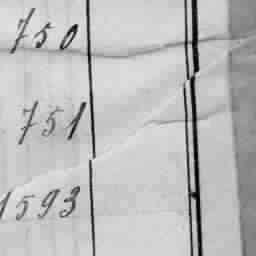 750
751
1593